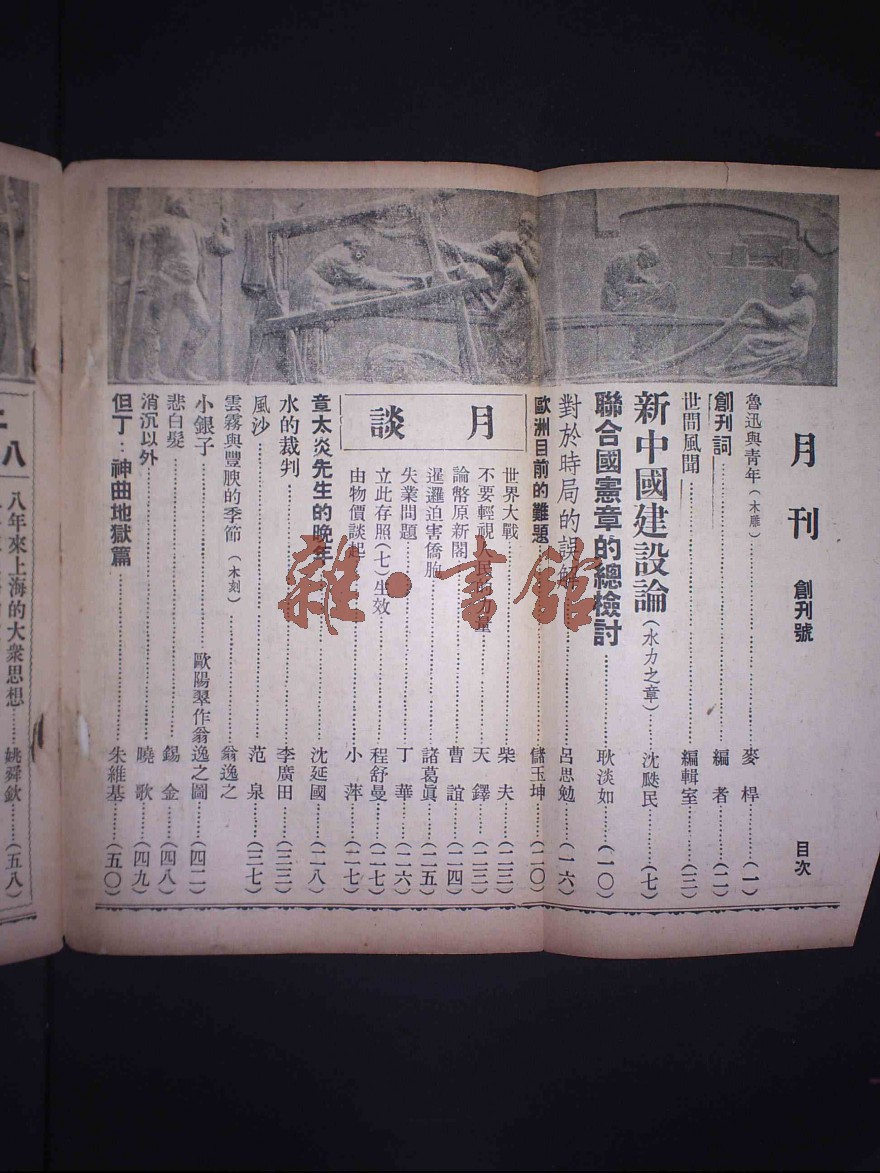 月刊 創刊號 目次
魯迅與青年(木雕)……麥桿……(一)
創刊詞……編者……(二)
世間風聞……編輯室……(三)
新中國建設論(水力之章)……沈颷民……(七)
聯合國憲章的總檢討……耿淡如……(一〇)
對於時局的誤解……呂思勉……(一六)
歐洲目前的難題……儲玉坤……(二〇)
月談
世界大戰……柴夫……(二三)
不要輕視人民的力量……天鐸……(二三)
論幣原新閣……曹誼……(二四)
暹邏迫害僑胞……諸葛眞……(二五)
失業問題……丁華……(二六)
立此存照(七)生效……程舒曼……(二七)
由物價談起……小萍……(二七)
章太炎先生的晚年……沈延國……(二八)
水的裁判……李廣田……(三三)
風沙……范泉……(三七)
雲霧與豐腴的季節(木刻)……翁逸之
小銀子 歐陽翠作翁逸之圖……(四二)
悲白髮……錫金……(四八)
消沉以外……曉歌……(四九)
但丁:神曲地獄篇……朱維基……(五〇)
八
八年來上海的大衆思想……姚舜欽……(五八)
雜·書館